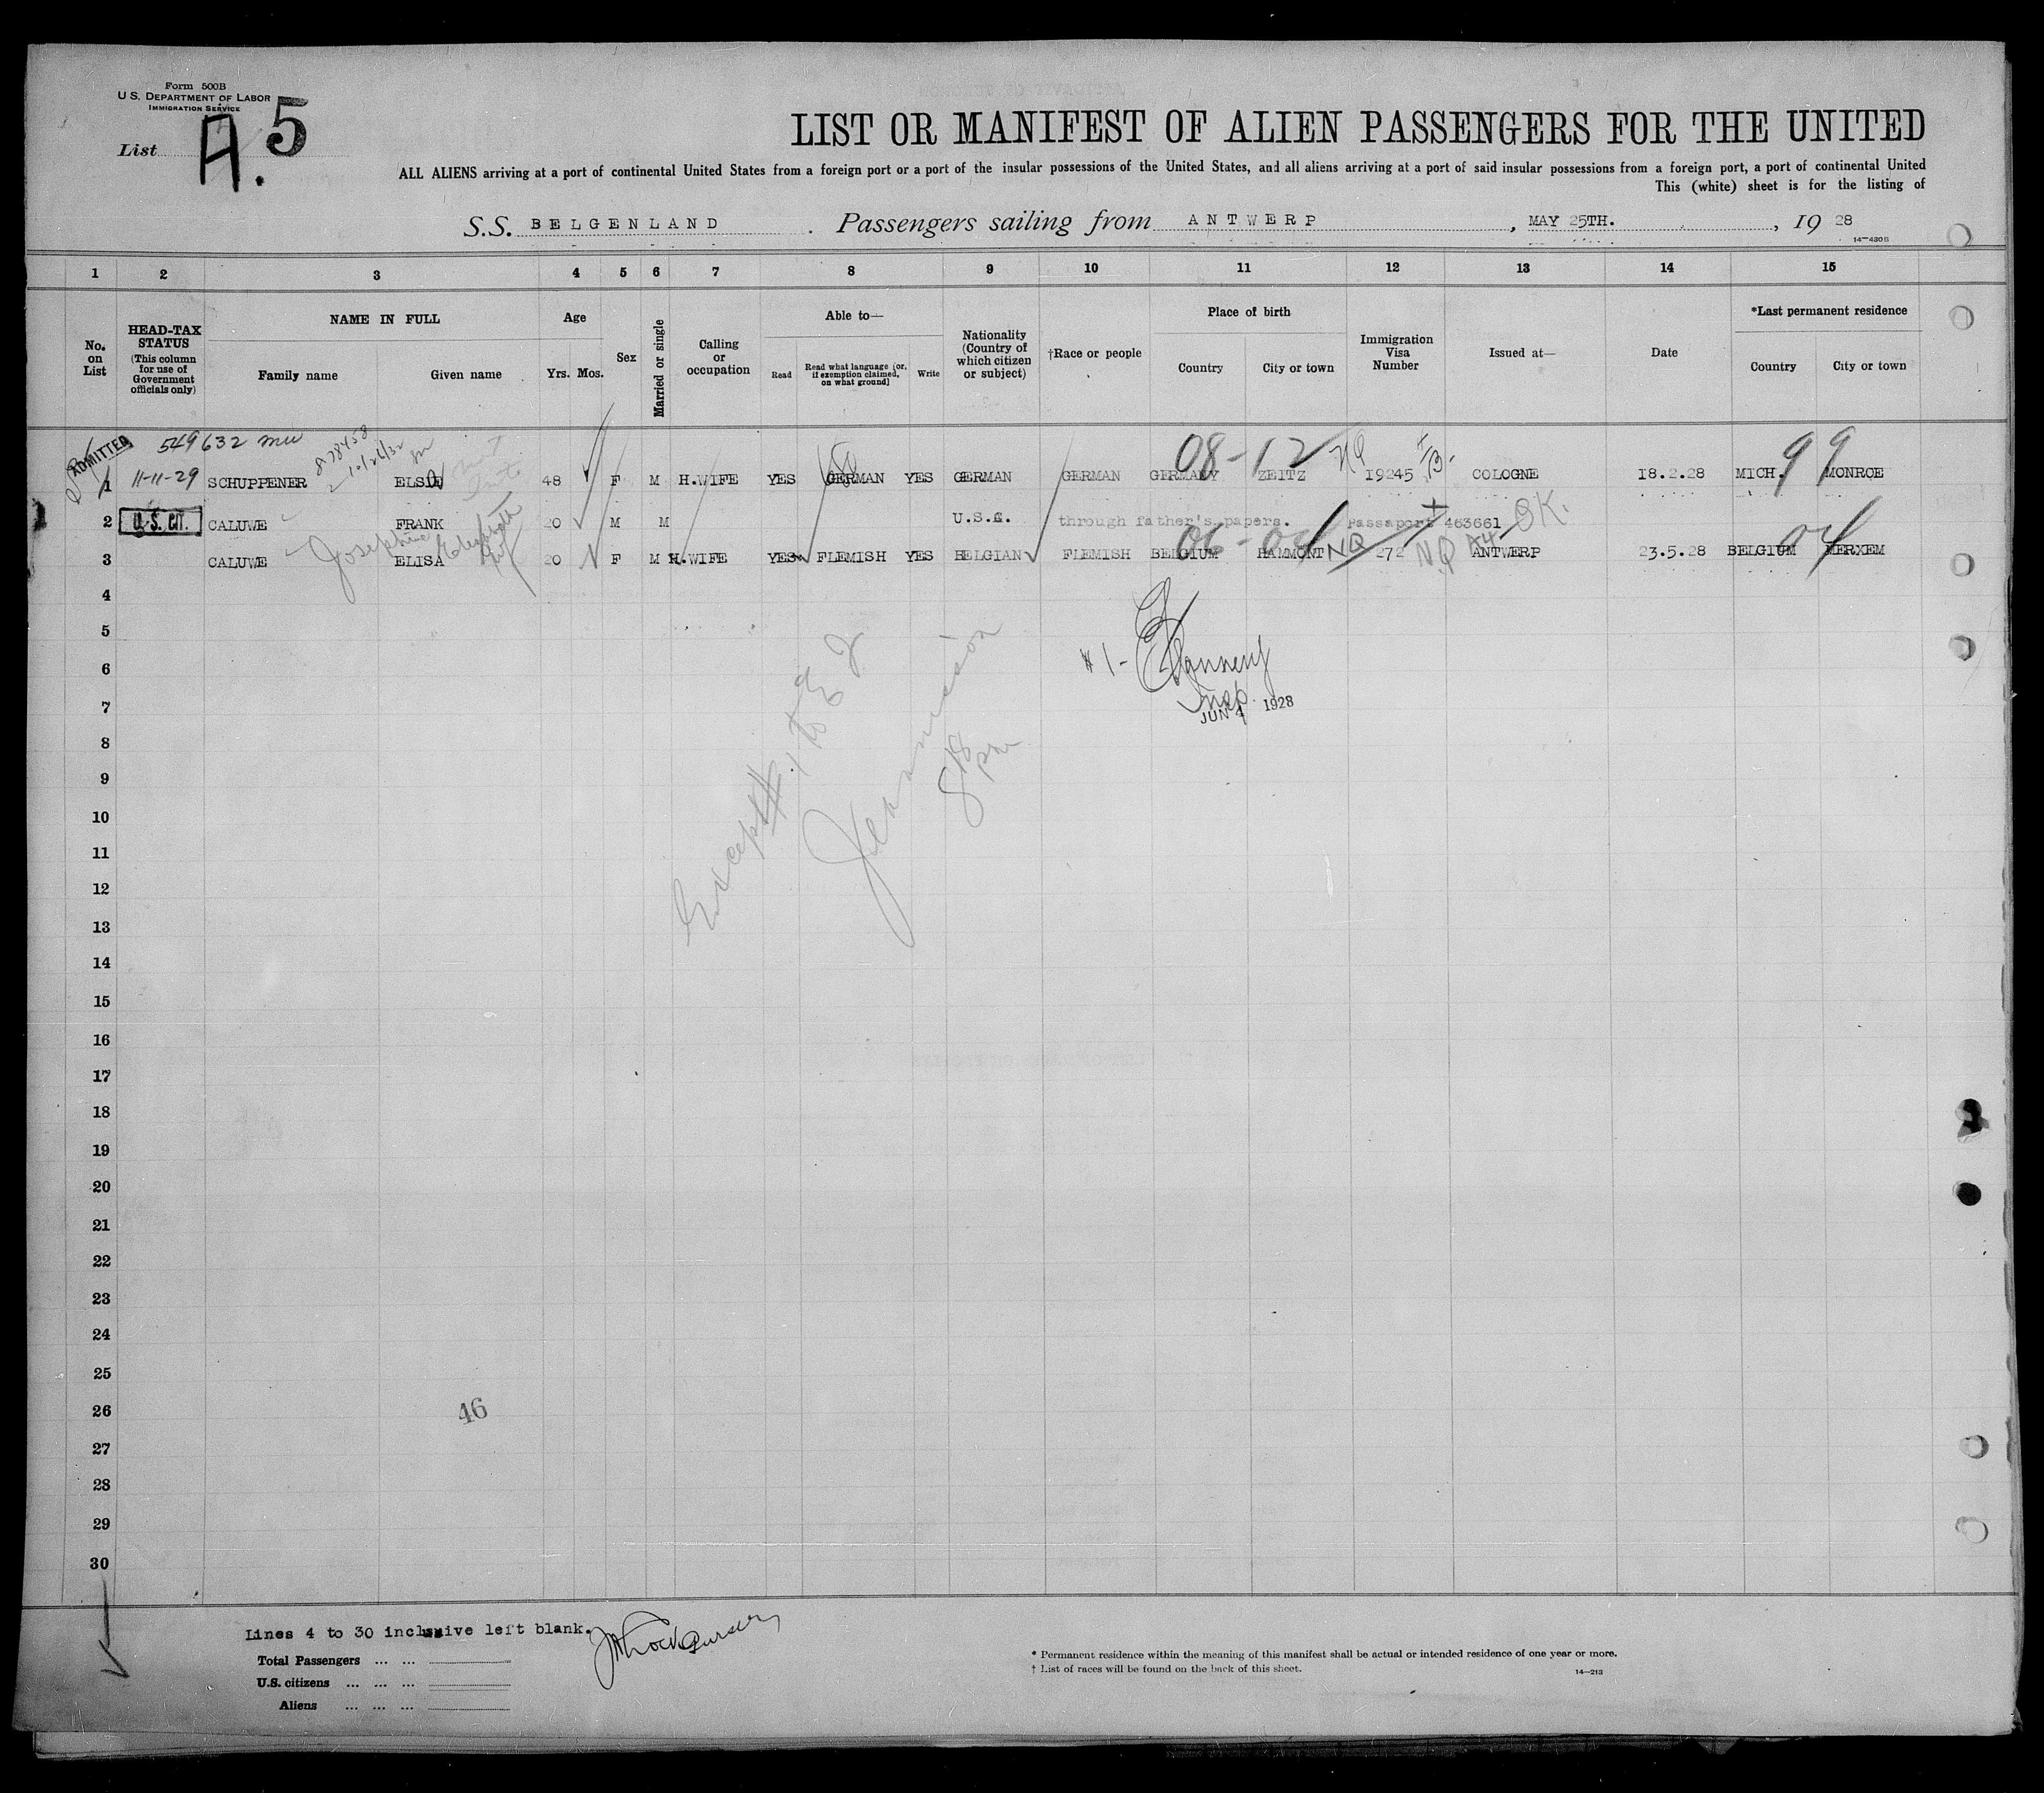 Form 500B
U.S. DEPARTMENT OF LABOR
IMMIGRATION SERVICE
List A. 5
LIST OR MANIFEST OF ALIEN PASSENGERS FOR THE UNITED
ALL ALIENS arriving at a port of continental United States from a foreign port or a port of the insular possessions of the United States, and all aliens arriving at a port of said insular possessions from a foreign port, a port of continental United
This (white) sheet is for the listing of
S.S. BELGENLAND. Passengers sailing from ANTWERP, MAY 25TH., 19 28
14-430B
1 2 3 4 5 6 7 8 9 10 11 12 13 14 15
No. on List
HEAD-TAX STATUS
(This column for use of Government officials only)
NAME IN FULL
Family name Given name
Age
Yrs. Mos.
Sex
Married or single
Calling or occupation
Able to—
Read
Read what language [or, if exemption claimed, on what ground]
Write
Nationality (Country of which citizen or subject)
†Race or people
Place of birth
Country City or town
Immigration Visa Number
Issued at—
Date
*Last permanent residence
Country City or town
ADMITTED 549632 08-12 NQ 99
1 11-11-29 SCHUPPENER ELSE 48 F M H.WIFE YES GERMAN YES GERMAN GERMAN GERMANY ZEITZ 19245 COLOGNE 18.2.28 MICH. MONROE
2 U.S. CIT. CALUWE FRANK 20 M M U.S.C. through father's papers. Passaport 463661 OK.
Josephine 06-04 NQ NQ 04
3 CALUWE ELISA 20 F M H.WIFE YES FLEMISH YES BELGIAN FLEMISH BELGIUM HAMMONT 272 ANTWERP 23.5.28 BELGIUM MERXEM
4
5
6
#1-
Insp.
7
JUN 4 1928
8
Except #1 to
9
10
11
12
13
14
15
16
17
18
19
20
21
22
23
24
25
26
46
27
28
29
30
Lines 4 to 30 inclusive left blank.
Total Passengers ... ...
U.S. citizens ... ... ...
Aliens ... ... ...
* Permanent residence within the meaning of this manifest shall be actual or intended residence of one year or more.
† List of races will be found on the back of this sheet.
14-213